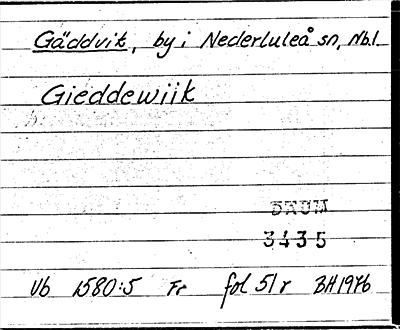 Gäddvik, by i Nederluleå sn, Nb.l.
Gieddewijk
DAUM
3435
Vb 1580:5 Fr fol 51r BH1976